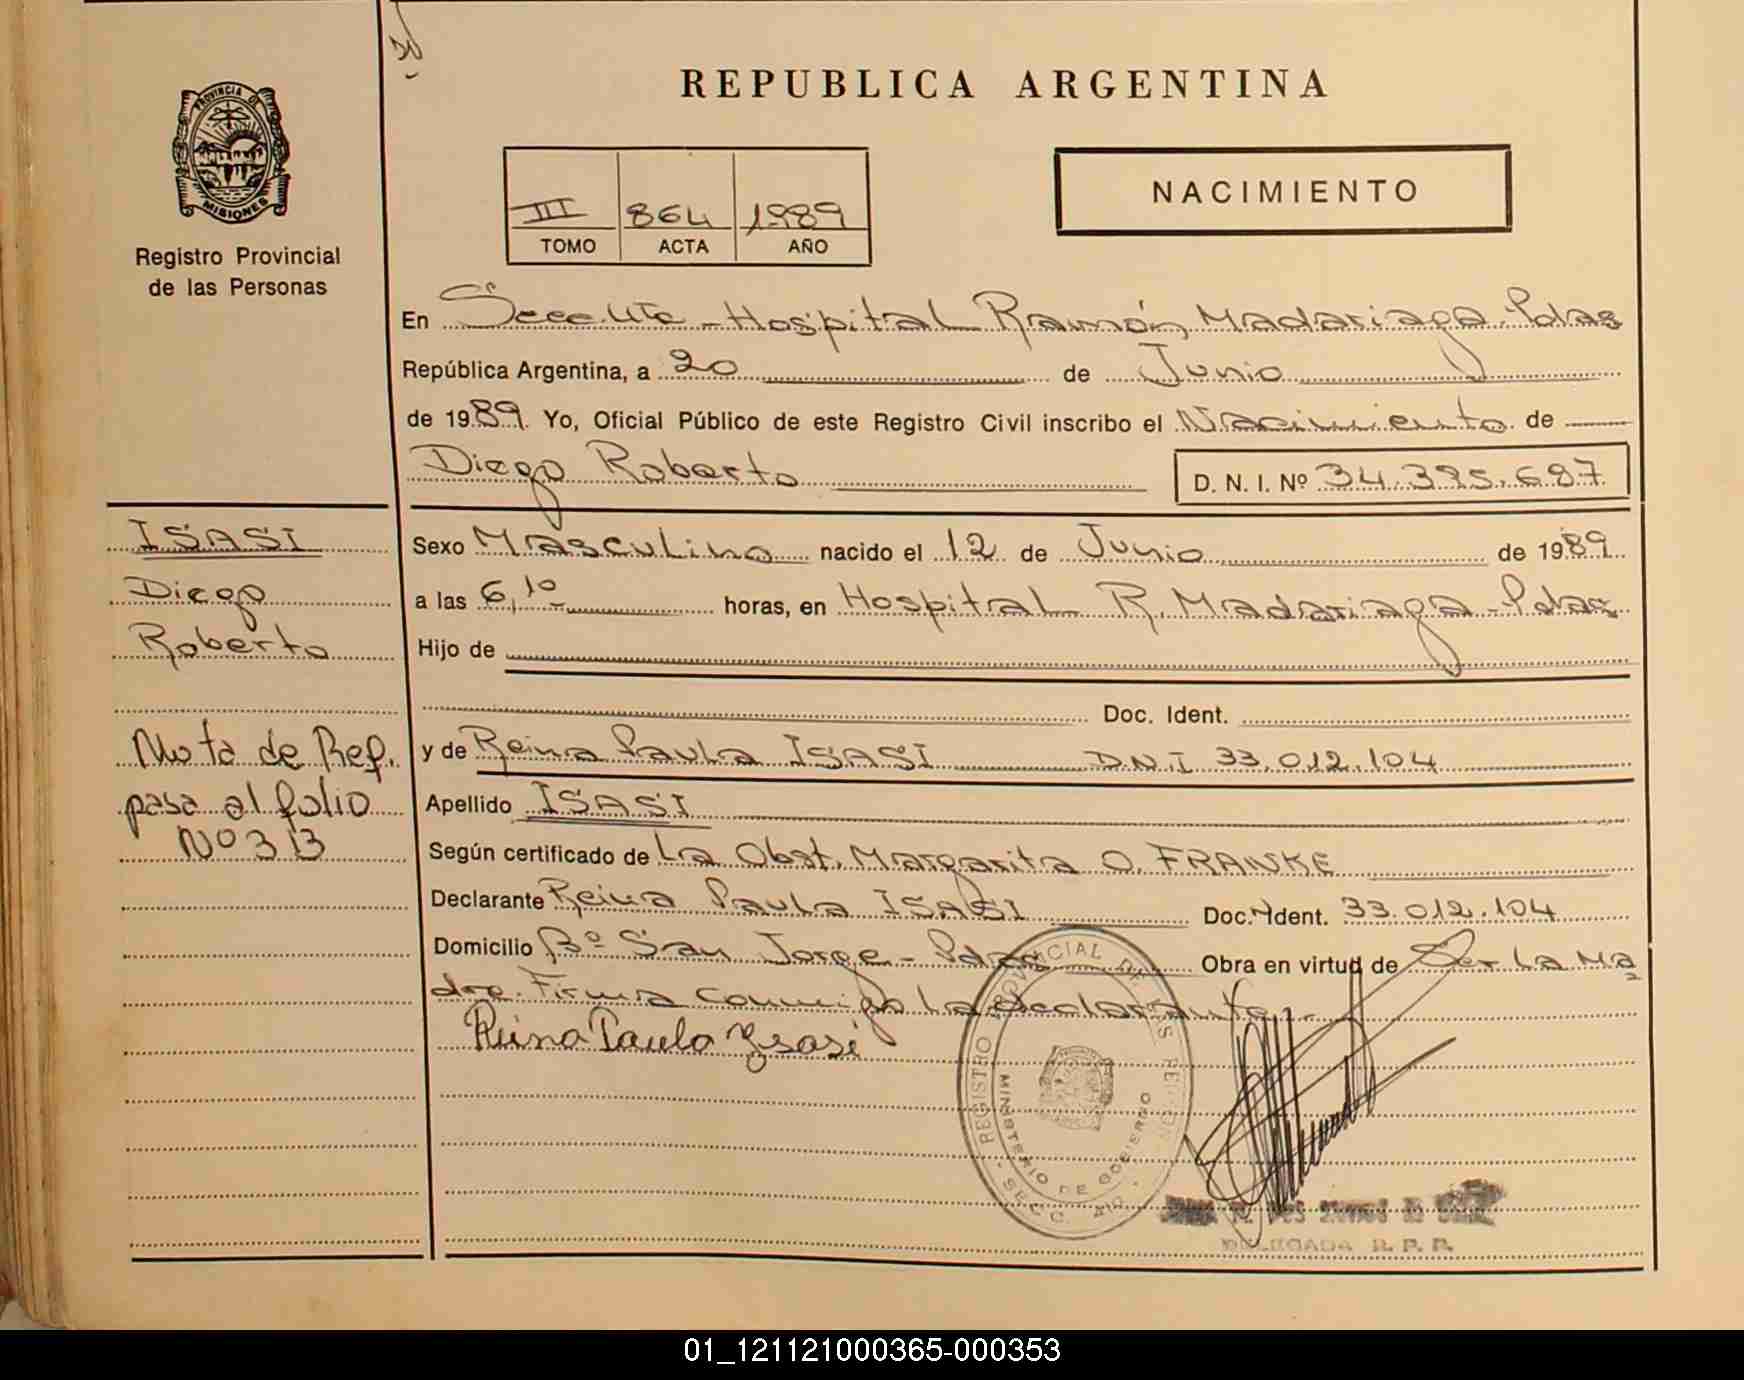 REPUBLICA ARGENTINA
PROVINCIA DE
MISIONES
Registro Provincial
de las Personas
III 864 1989
TOMO ACTA AÑO
NACIMIENTO
En Hospital Ramón Madariaga-Pdas
República Argentina, a 20 de Junio
de 1989 Yo, Oficial Público de este Registro Civil inscribo el Nacimiento de
Diego Roberto D. N. I. Nº 34.395.687
Sexo Masculino nacido el 12 de Junio de 1989
a las 6,10 horas, en Hospital R. Madariaga-Pdas
Hijo de
Doc. Ident.
y de Reina Paula ISASI D.N.I 33.012.104
Apellido ISASI
Según certificado de La Obst. Margarita O. FRANKE
Declarante Reina Paula ISASI Doc. Ident. 33.012.104
Domicilio Bº San Jorge - Pdas Obra en virtud de Ser La Ma
dre. Firma conmigo La declarante.-
Reina Paula Ysasi
ISASI
Diego
Roberto
Nota de Ref.
pasa al folio
Nº 313
REGISTRO PROVINCIAL DE LAS PERSONAS
MINISTERIO DE GOBIERNO
SECC.
DELEGADA R. P. P.
01_121121000365-000353